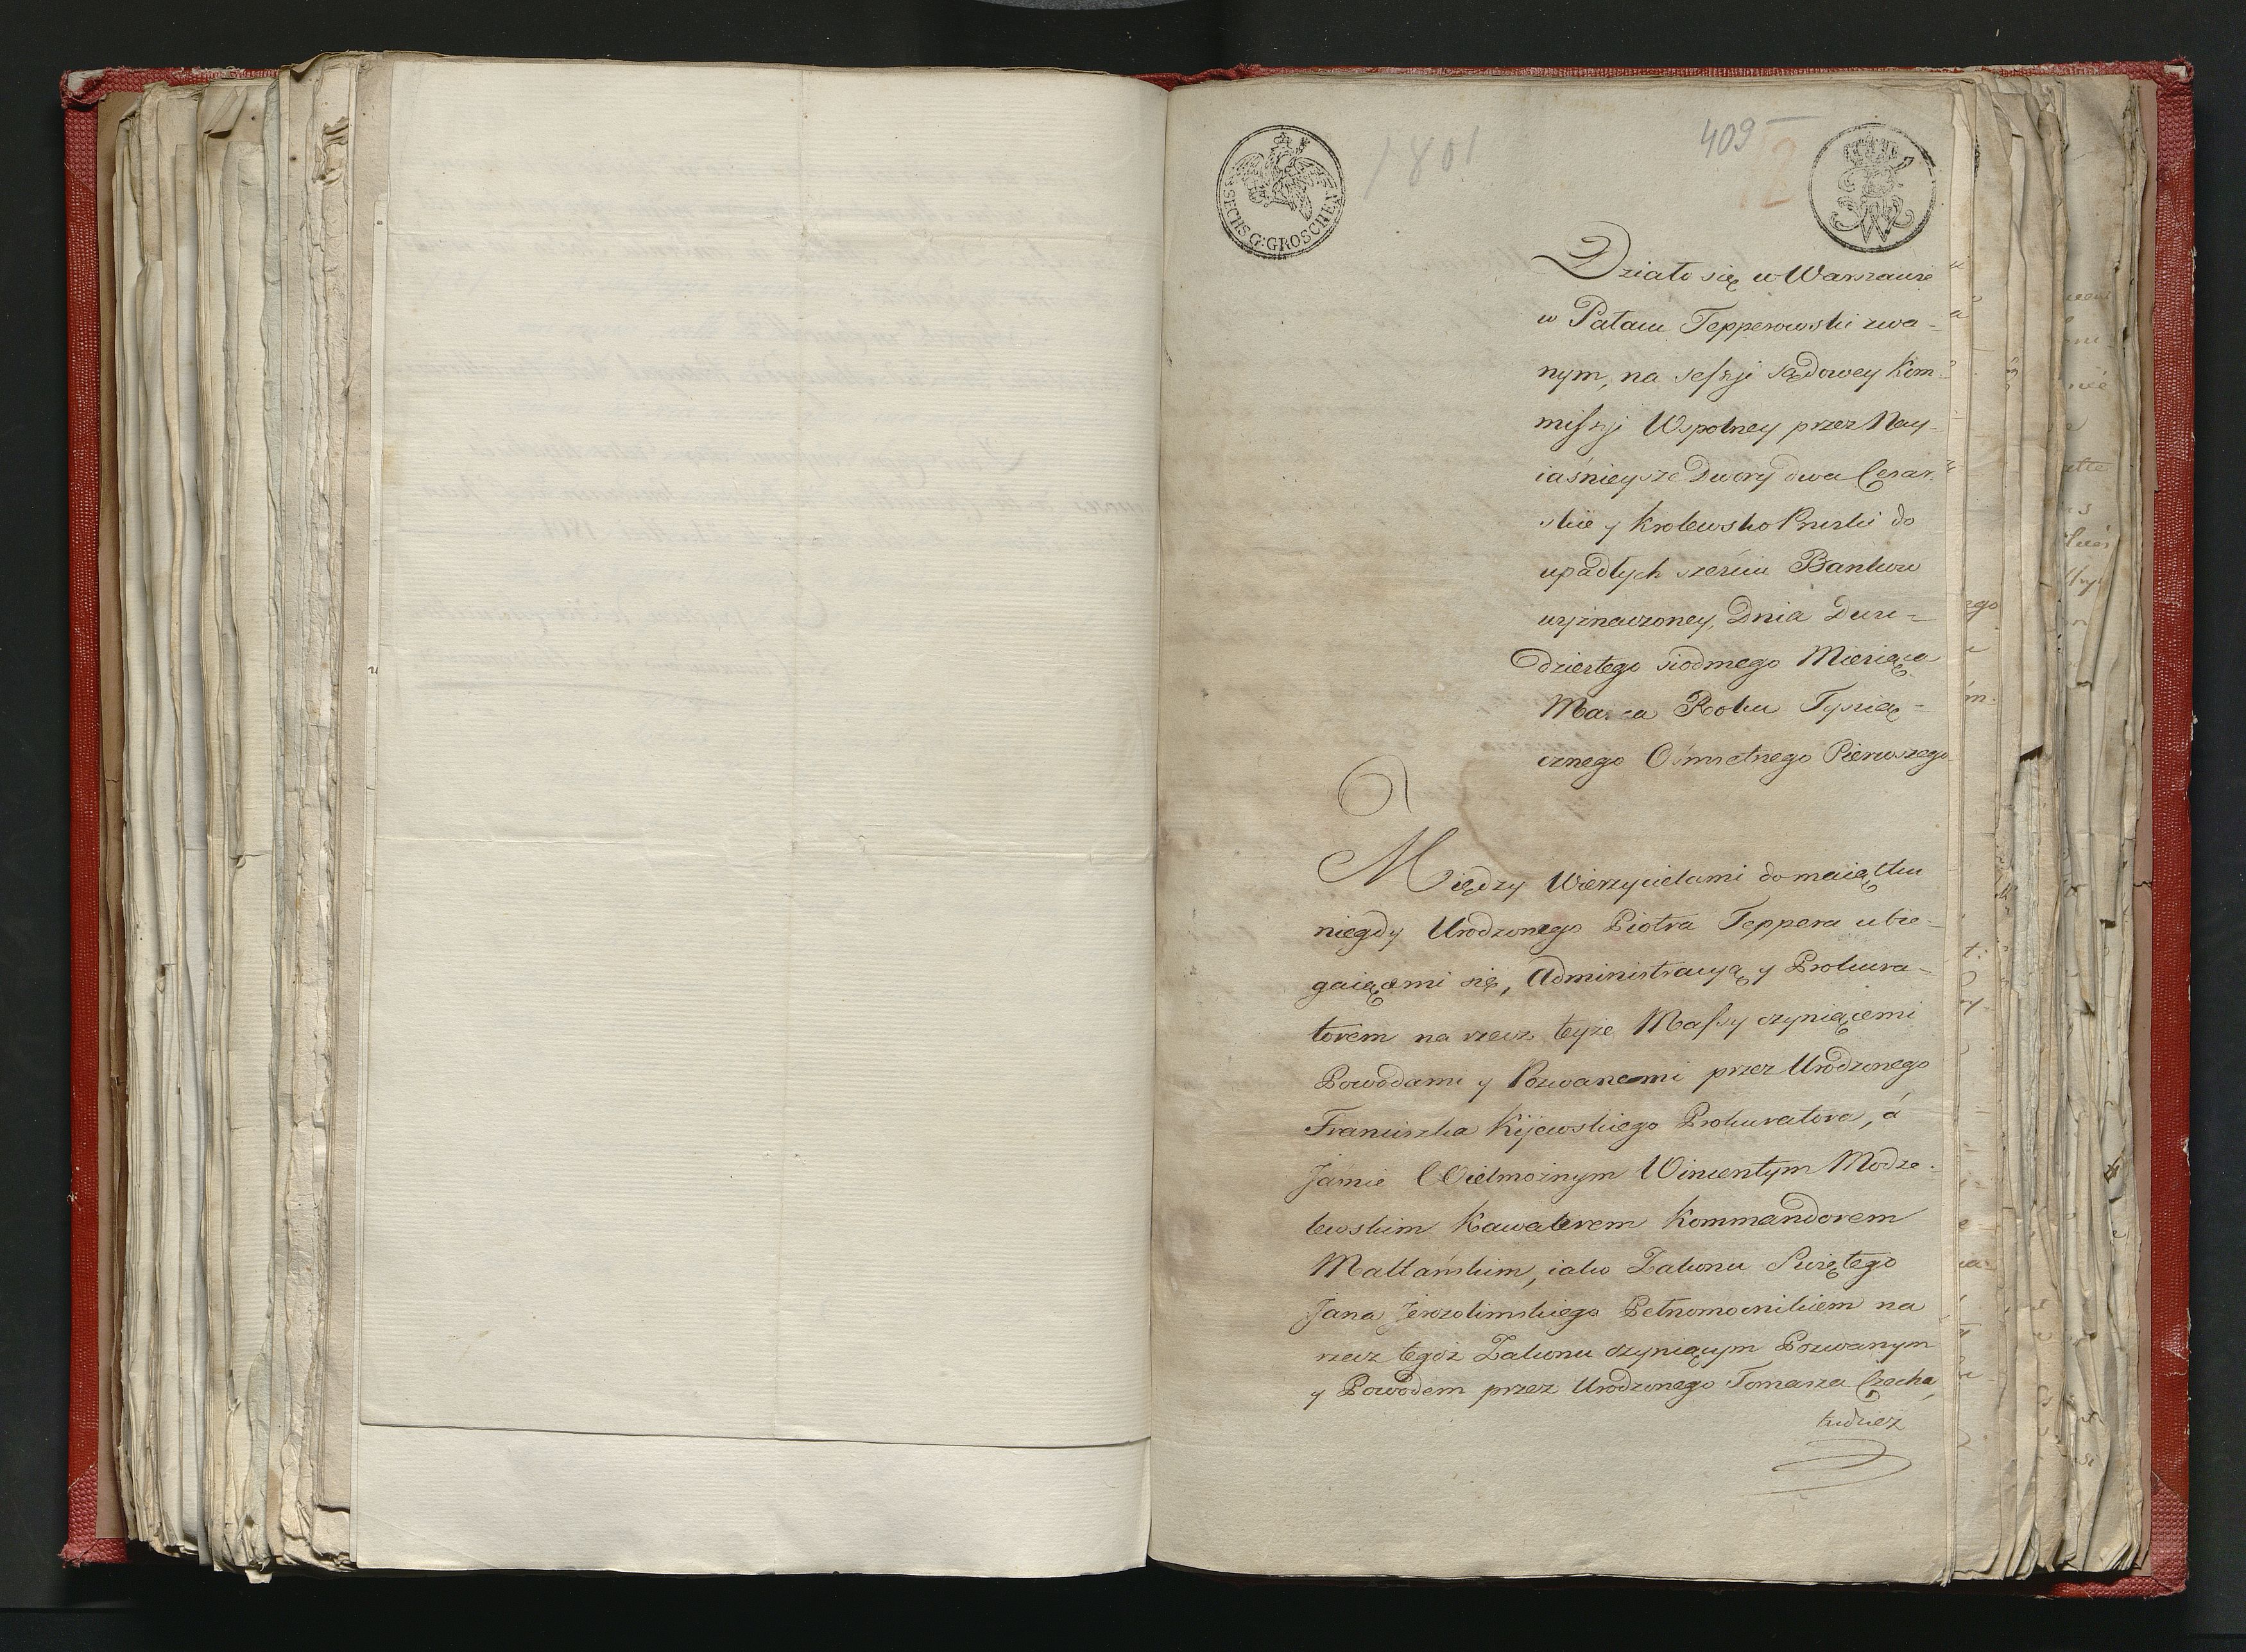 SECHS G:GROSCHEN
1801
409
12
Działo się w Warszawie
w Pałacu Tepperowski zwa-
nym, na sessyi sądowey Kom-
missyi Wspolney przez Nay-
iaśnieysze Dwory dwa Cesar-
skie y Krolewsko Pruski do
upadłych sześciu Bankow
wyznaczoney, Dnia Dwu-
dziestego siodmego Miesiąca
Marca Roku Tysią-
cznego Osmsetnego Pierwszego
Między Wierzycielami do maiątku
niegdy Urodzonego Piotra Teppera ubie-
gaiącemi się, Administracyą y Prokura-
torem na rzecz teyże Massy czyniącemi
Powodami y Pozwanemi przez Urodzonego
Franciszka Kijewskiego Prokuratora, á
Jaśnie Wielmożnym Wincentym Modze-
lewskim Kawalerem Kommandorem
Maltańskim, iako Zakonu Swiętego
Jana Jerozolimskiego Pełnomocnikiem na
rzecz tegoż Zakonu czyniącym Pozwanym
y Powodem przez Urodzonego Tomasza Czecha,
tudzież